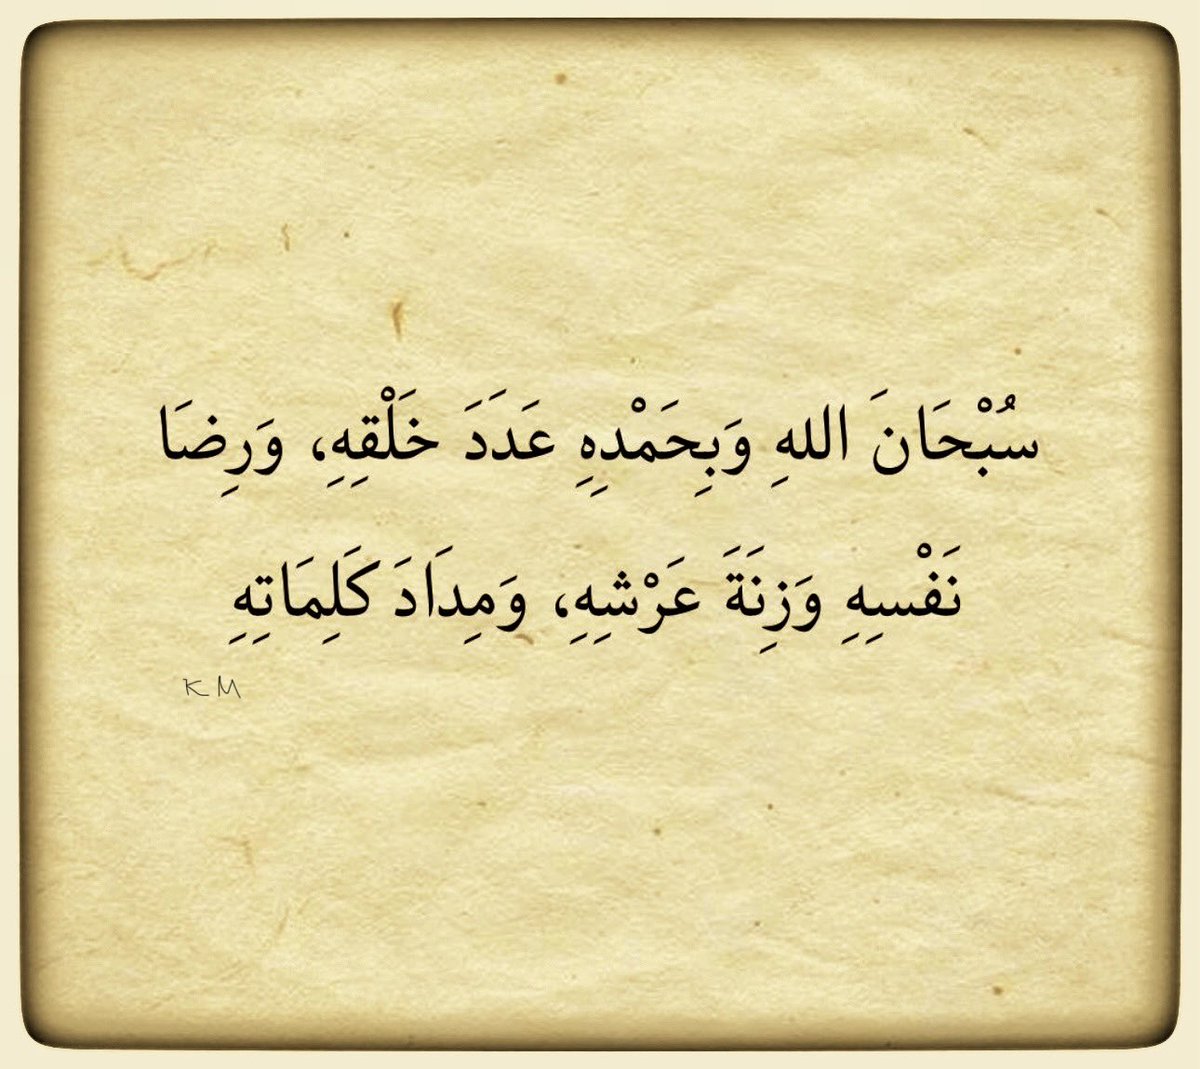 سُبْحَانَ اللهِ وَبِحَمْدِهِ عَدَدَ خَلْقِهِ، وَرِضَا
نَفْسِهِ وَزِنَةَ عَرْشِهِ، وَمِدَادَ كَلِمَاتِهِ
K M